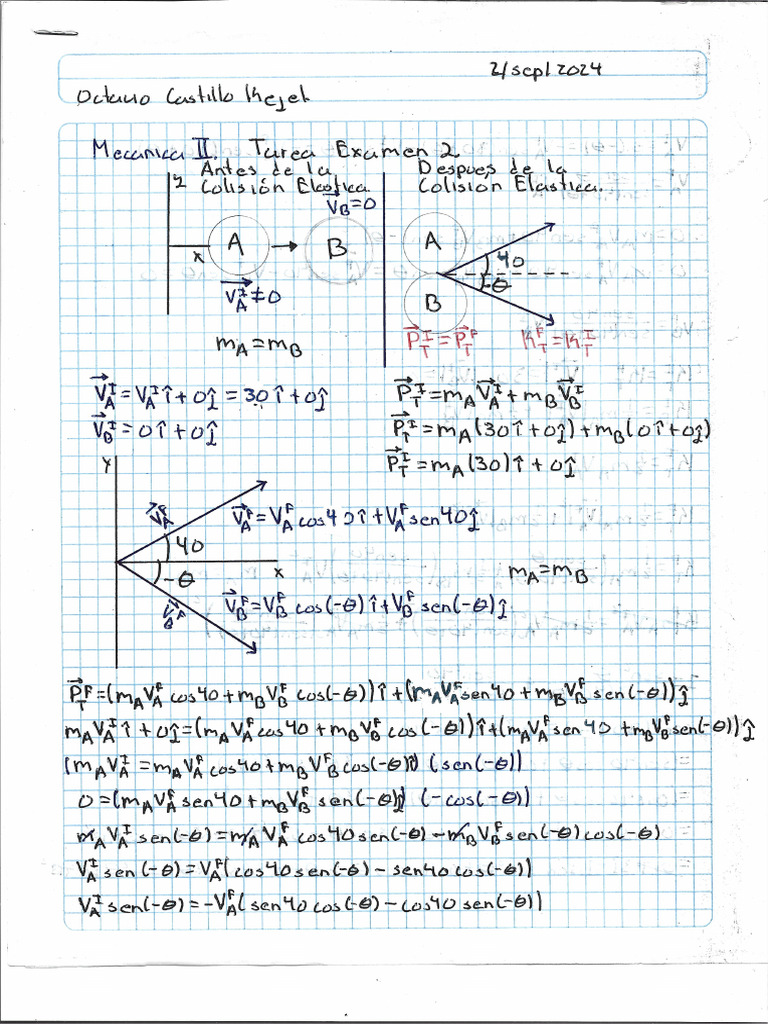 2/sep/2024
Octavio Castillo
Mecanica II. Tarea Examen 2.
y Antes de la Colisión Elastica.
V⃗_B=0
A B
x
V⃗_A^I≠0
m_A=m_B
Despues de la Colisión Elastica.
A
40
-θ
B
P⃗_T^I=P⃗_T^F K_T^F=K_T^I
V⃗_A^I=V_A^I î+0ĵ=30î+0ĵ
V⃗_B^I=0î+0ĵ
P⃗_T^I=m_A V⃗_A^I+m_B V⃗_B^I
P⃗_T^I=m_A(30î+0ĵ)+m_B(0î+0ĵ)
P⃗_T^I=m_A(30)î+0ĵ
y
V⃗_A^F
V⃗_A^F=V_A^F cos40î+V_A^F sen40ĵ
40
x
-θ
m_A=m_B
V⃗_B^F
V⃗_B^F=V_B^F cos(-θ)î+V_B^F sen(-θ)ĵ
P⃗_T^F=(m_A V_A^F cos40+m_B V_B^F cos(-θ))î+(m_A V_A^F sen40+m_B V_B^F sen(-θ))ĵ
m_A V_A^I î+0ĵ=(m_A V_A^F cos40+m_B V_B^F cos(-θ))î+(m_A V_A^F sen40+m_B V_B^F sen(-θ))ĵ
(m_A V_A^I=m_A V_A^F cos40+m_B V_B^F cos(-θ)) (sen(-θ))
0=(m_A V_A^F sen40+m_B V_B^F sen(-θ)) (-cos(-θ))
m_A V_A^I sen(-θ)=m_A V_A^F cos40 sen(-θ)-m_B V_B^F sen(-θ) cos(-θ)
V_A^I sen(-θ)=V_A^F(cos40 sen(-θ)-sen40 cos(-θ))
V_A^I sen(-θ)=-V_A^F(sen40 cos(-θ)-cos40 sen(-θ))